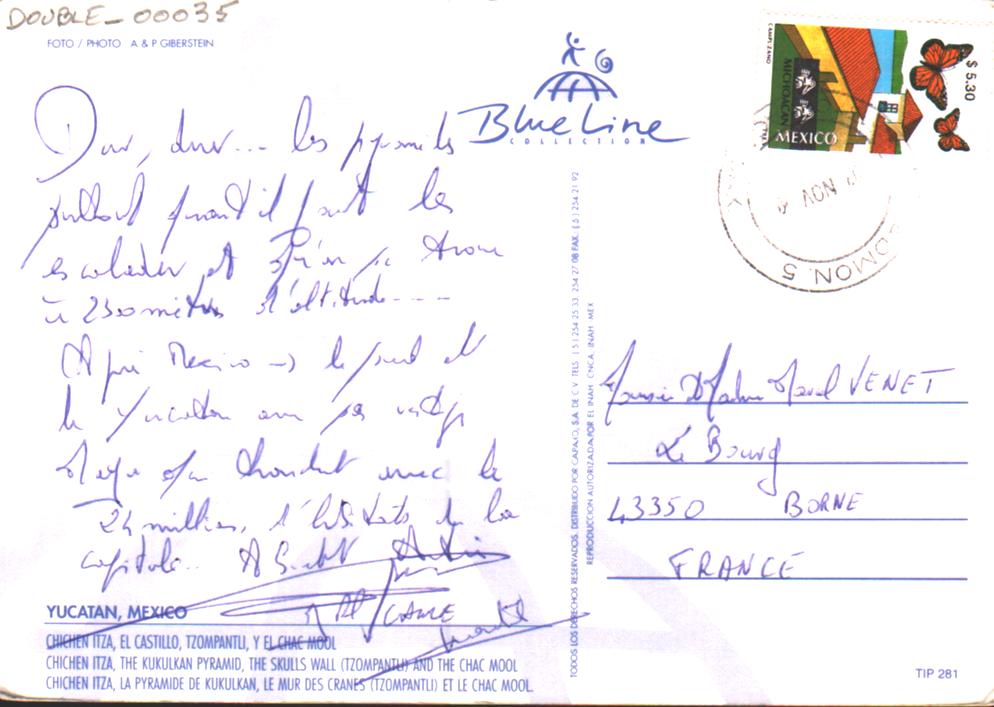 DOUBLE_00035
FOTO / PHOTO A & P GIBERSTEIN
Blue Line
COLLECTION
CAMPI. ZANO
MICHOACAN
MEXICO
$ 5.30
NOV
Dur, dur... les pyramides
surtout quand il faut les
escalader et qu'on se trouve
à 2300 mètres d'altitude----
Après Mexico → le sud et
le Yucatan avec ses vestiges
Maya avec le
24 millions d'habitants de la
capitale.. A Bientôt
YUCATAN, MEXICO
CHICHEN ITZA, EL CASTILLO, TZOMPANTLI, Y EL CHAC MOOL
CHICHEN ITZA, THE KUKULKAN PYRAMID, THE SKULLS WALL (TZOMPANTLI) AND THE CHAC MOOL
CHICHEN ITZA, LA PYRAMIDE DE KUKULKAN, LE MUR DES CRANES (TZOMPANTLI) ET LE CHAC MOOL.
TODOS LOS DERECHOS RESERVADOS. DISTRIBUIDO POR CAPAXO, S.A. DE C.V. TELS. ( 5 ) 254 25 33, 254 27 08 FAX. ( 5 ) 254 21 92
REPRODUCCION AUTORIZADA POR EL INAH CNCA. INAH MEX
Monsieur et Madame Marcel VENET
Le Bourg
43350 BORNE
FRANCE
TIP 281